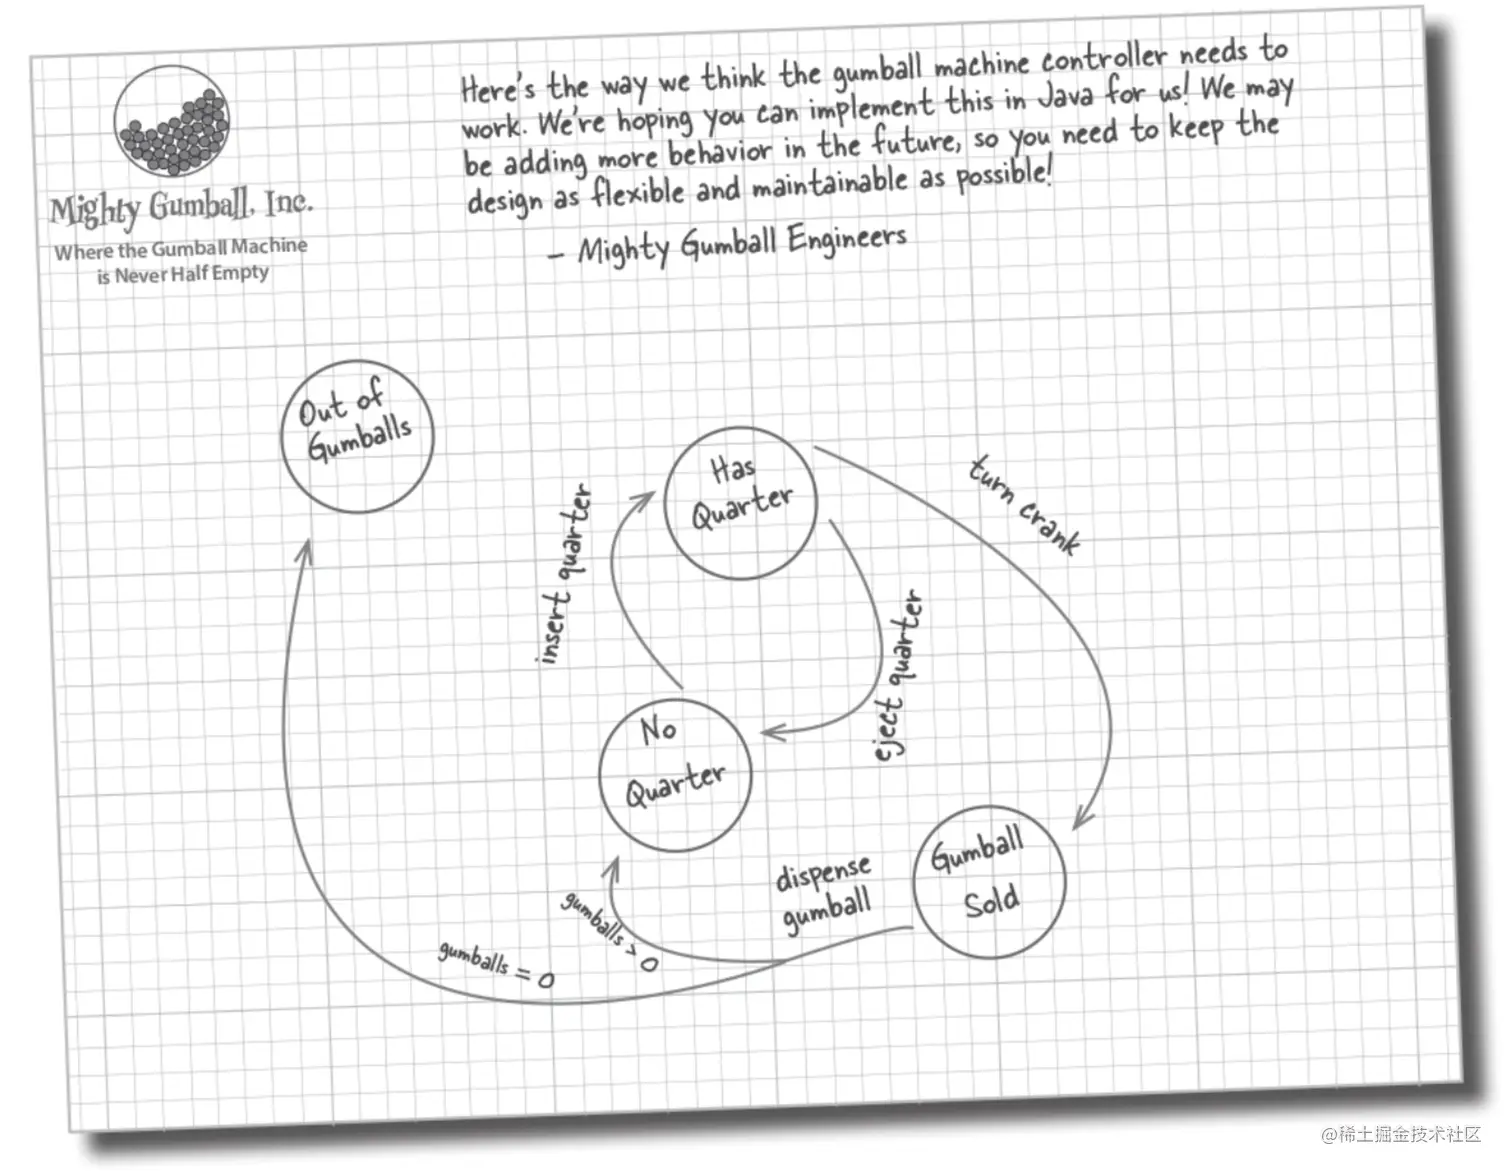 Here's the way we think the gumball machine controller needs to
work. We're hoping you can implement this in Java for us! We may
be adding more behavior in the future, so you need to keep the
design as flexible and maintainable as possible!
– Mighty Gumball Engineers
Mighty Gumball, Inc.
Where the Gumball Machine
is Never Half Empty
Out of
Gumballs
Has
Quarter
turn crank
insert quarter
eject quarter
No
Quarter
Gumball
Sold
dispense
gumball
gumballs > 0
gumballs = 0
@稀土掘金技术社区